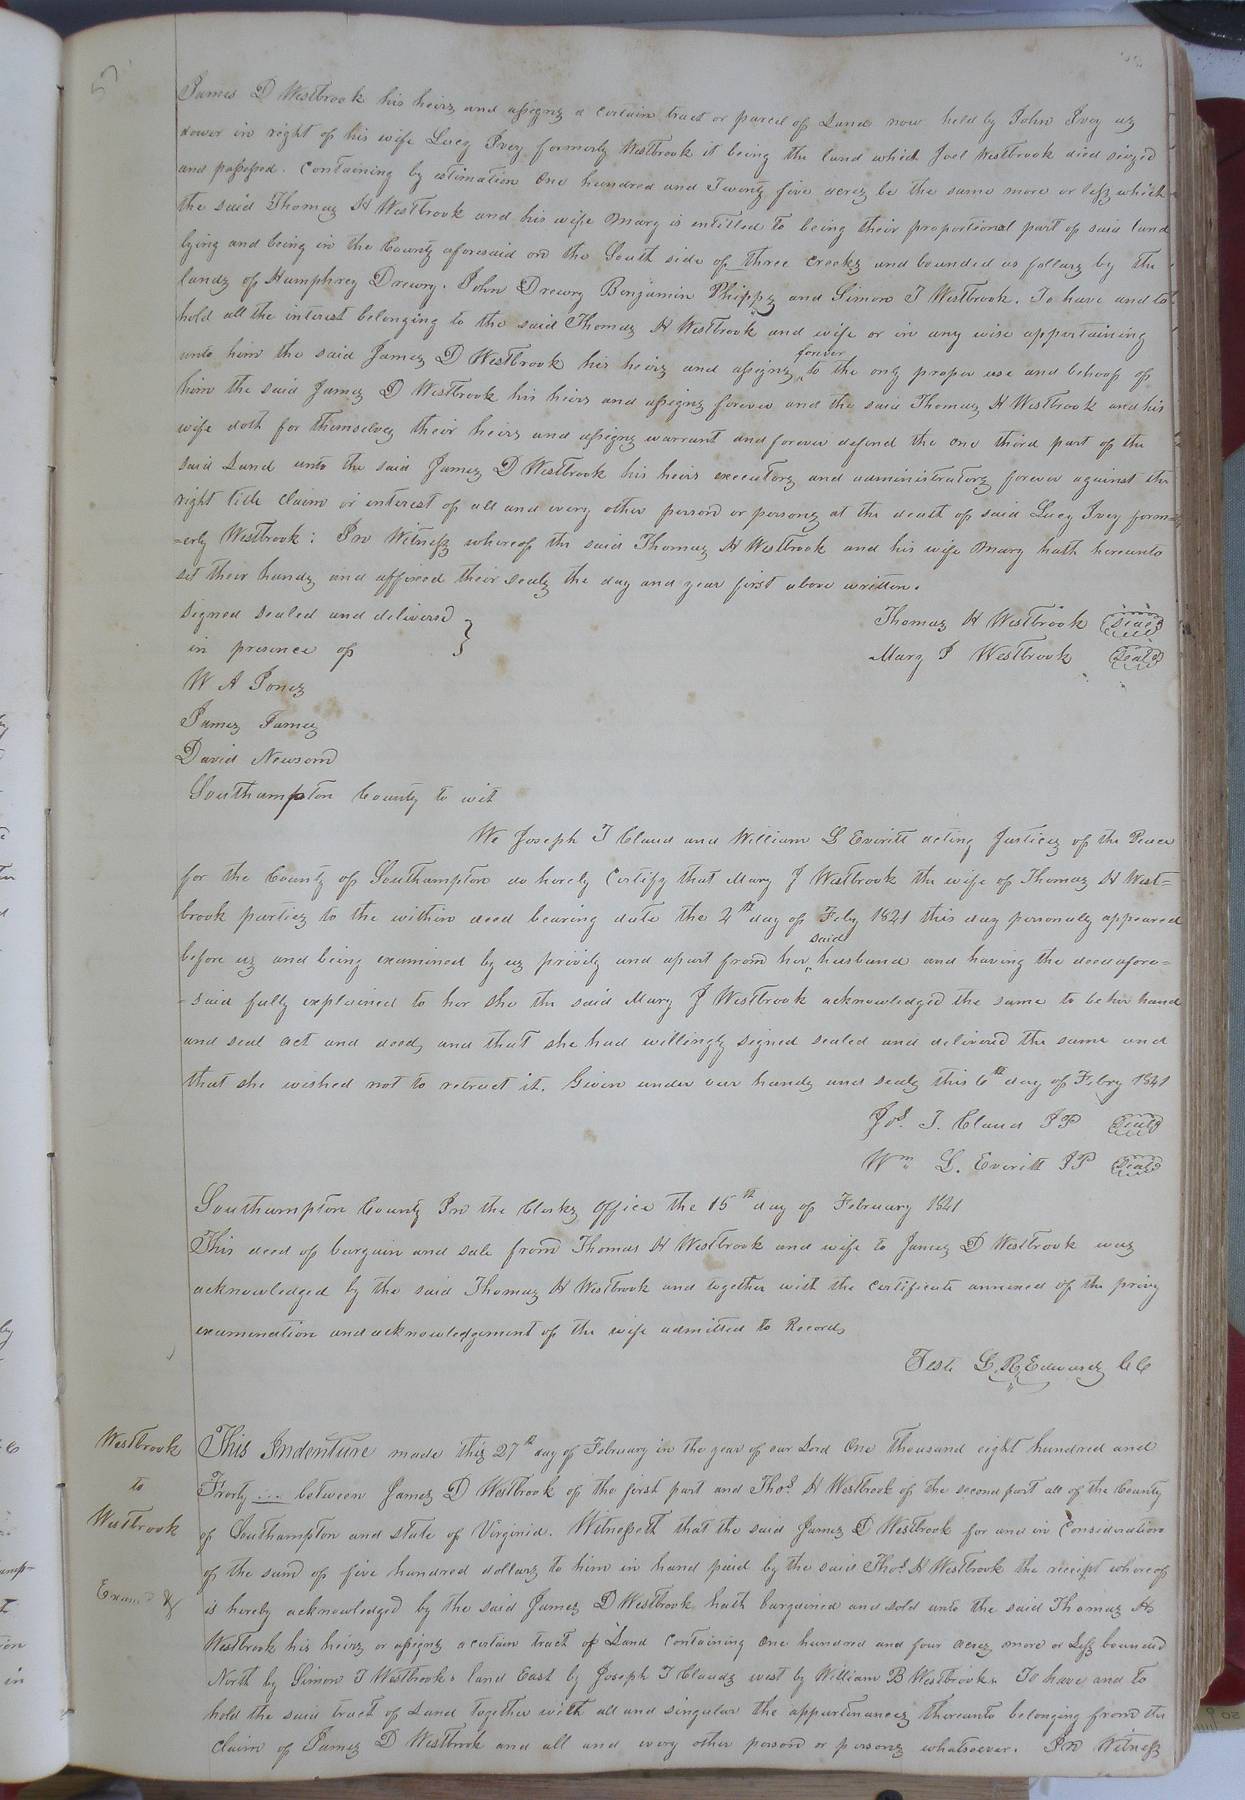 James D Westbrook his heirs and assigns a certain tract or parcel of Land now held by John Ivey as
dower in right of his wife Lucy Ivey formerly Westbrook it being the land which Joel Westbrook died seized
and possessed. Containing by estimation One hundred and Twenty five acres be the same more or less which
the said Thomas H Westbrook and his wife Mary is entitled to being their proportional part of said land
lying and being in the County aforesaid on the South side of three creeks and bounded as follars by the
lands of Humphrey Drewry. John Drewry Benjamin Phipps and Simon T Westbrook. To have and to
hold all the interest belonging to the said Thomas H Westbrook and wife or in any wise appertaining
unto him the said James D Westbrook his heirs and assigns forever to the only proper use and behoof of
him the said James D Westbrook his heirs and assigns forever and the said Thomas H Westbrook and his
wife doth for themselves their heirs and assigns warrant and forever defend the one third part of the
said Land unto the said James D Westbrook his heirs executors and administrators forever against the
right title claim or interest of all and every other person or persons at the death of said Lucy Ivey form=
=erly Westbrook: In Witness whereof the said Thomas H Westbrook and his wife Mary hath hereunto
set their hands and affixed their seals the day and year first above written.
signed sealed and delivered } Thomas H Westbrook (Seal)
in presence of Mary J Westbrook (Seal)
W A Jones
James James
David Newsom
Southampton County to wit
We Joseph T Claud and William L Everitt acting Justices of the Peace
for the County of Southampton do hereby Certify that Mary J Westbrook the wife of Thomas H West=
brook parties to the within deed bearing date the 2th day of Feby 1821 this day personally appeared
before us and being examined by us privily and apart from her said husband and having the deed afore=
=said fully explained to her she the said Mary J Westbrook acknowledged the same to be her hand
and seal act and deed, and that she had willingly signed sealed and delivered the same and
that she wished not to retract it. Given under our hands and seals this 6th day of Febry 1841
Jos. T. Claud JP (Seal)
Wm L. Everitt JP (Seal)
Southampton County In the Clerks Office the 15th day of February 1841
This deed of bargain and sale from Thomas H Westbrook and wife to James D Westbrook was
acknowledged by the said Thomas H Westbrook and together with the certificate annexed of the privy
examination and acknowledgement of the wife admitted to Record,
Teste L. R. Edwards CC
Westbrook
to
Westbrook
Examd &
This Indenture made this 27th day of February in the year of our Lord One thousand eight hundred and
Frorty .... between James D Westbrook of the first part and Thos. H Westbrook of the second part all of the County
of Southampton and state of Virginia. Witnesseth that the said James D Westbrook for and in Consideration
of the sum of five hundred dollars to him in hand paid by the said Thos. H Westbrook the receipt whereof
is hereby acknowledged by the said James D Westbrook hath bargained and sold unto the said Thomas H
Westbrook his heirs or assigns a certain tract of Land Containing One hundred and four acres more or Less bounded
North by Simon T Westbrooks land East by Joseph T Clauds west by William B Westbrooks. To have and to
hold the said tract of Land together with all and singular the appurtinances thereunto belonging from the
claim of James D Westbrook and all and every other person or persons whatsoever. In Witness